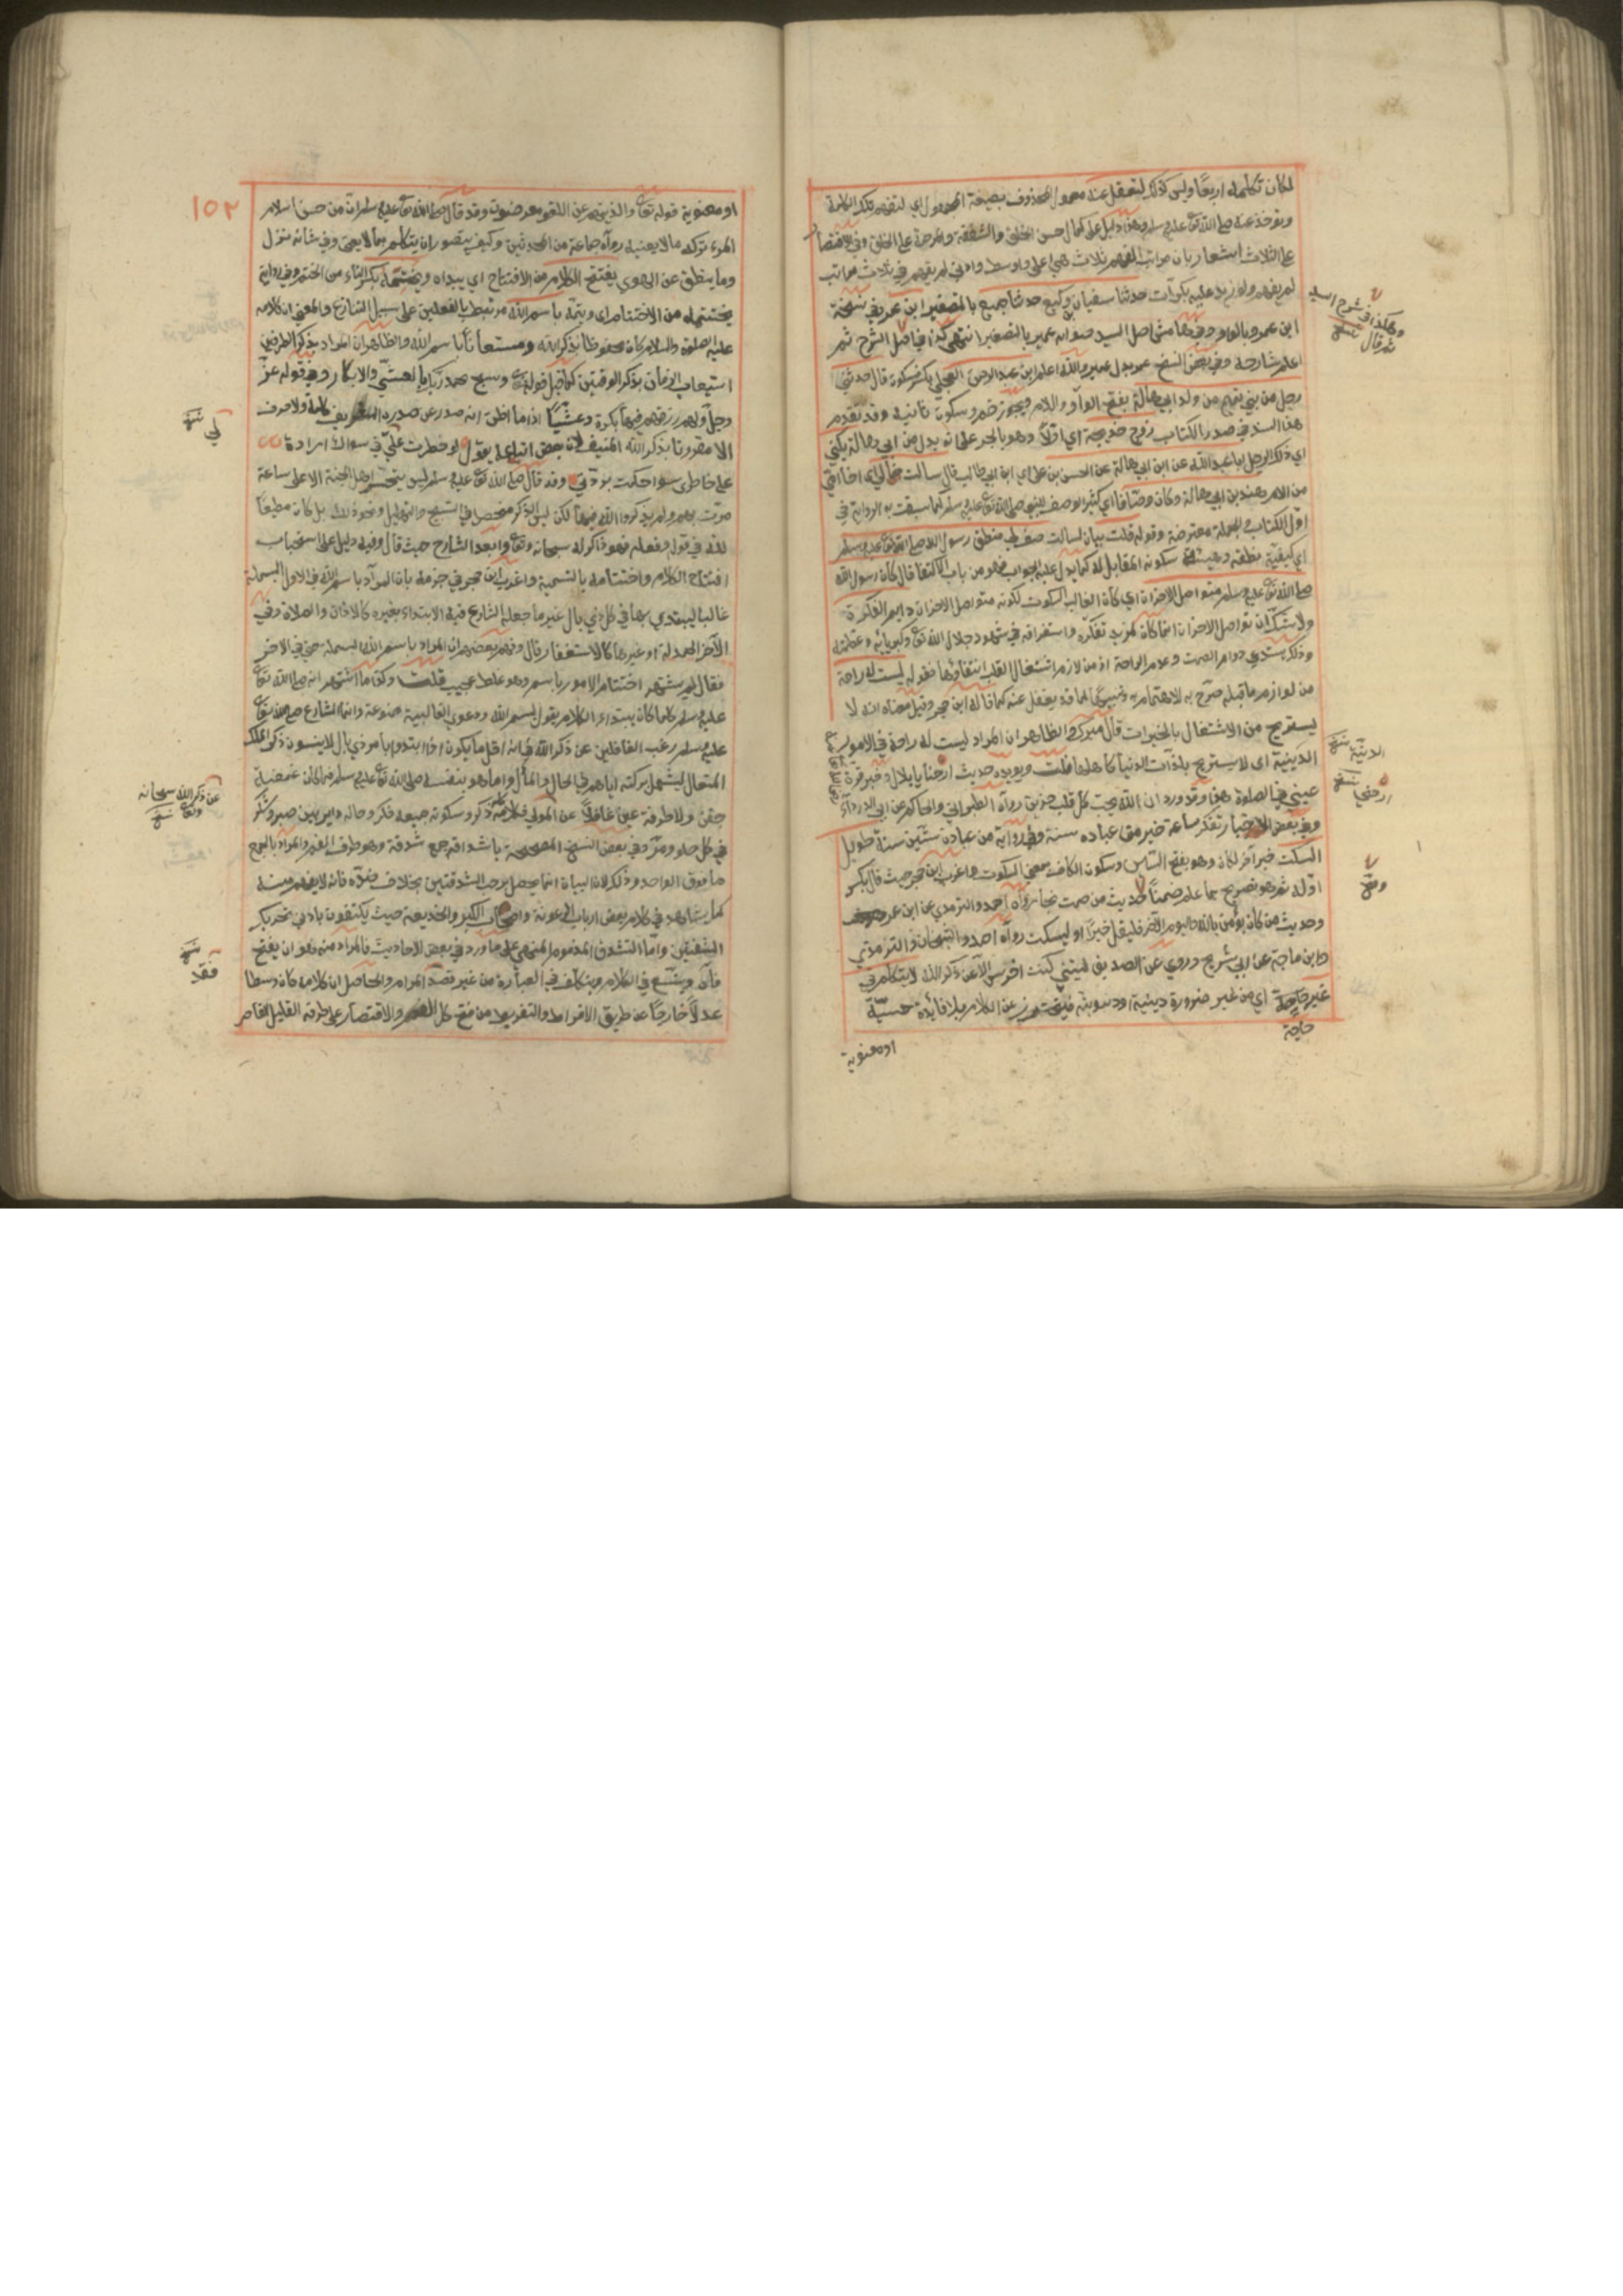 لكان تكلمه اربعا وليس كذلك لتعقل عنه بصيغة المجهول اي لتفهم تلك الكلمة
وتؤخذ عنه صلى الله تعا عليه وسلم وهذا دليل على كمال حسن الخلق والشفقة والمرحمة على الخلق وفي الاقتصار
على الثلاث اشعار بان مراتب الفهم ثلاث هي اعلى واوسط وادنى لم يفهم في ثلاث مراتب
لم يفهم ولو زيد عليه بكرات حدثنا سفيان بن وكيع حدثنا جميع بالتصغير ابن عمر وفي نسخة
ابن عمرو بالواو اصل السيد صوابه عمير بالتصغير انتهى كذا قبل الشرح ثم
اعلم شارحه وفي بعض النسخ عمر بدل عمير والله اعلم ابن عبد الرحمن العجلي بكسر فسكون قال حدثني
رجل من بني تميم من ولد ابي هالة بفتح الواو واللام ويجوز ضم وسكون ثانيه وقد تقدم
هذا السند في صدر الكتاب زوج خديجة اي اولا وهو بالجر على انه بدل من ابي هالة يكنى
اي ذلك الرجل ابا عبد الله عن ابن ابي هالة عن الحسن بن علي اي ابن ابي طالب قال سالت خالي اي اخا امي
من الام هند بن ابي هالة وكان وصافا اي كثير الوصف للنبي صلى الله تعا عليه وسلم كما سبقت به الرواية في
اول الكتاب والجملة معترضة وقوله قلت بيان لسالت صف لي منطق رسول الله صلى الله تعا عليه وسلم
اي كيفية نطقه وهيئة سكوته المقابل له كما يدل عليه الجواب فهو من باب الاكتفا قال كان رسول الله
صلى الله تعا عليه وسلم متواصل الاحزان اي كان الغالب السكوت لكونه متواصل الاحزان دايم الفكرة
ولا شك ان تواصل الاحزان انما كان لمزيد تفكره واستغراقه في شهود جلال الله تعا وكبريائه وعظمته
وذلك يستدي دوام الصمت وعدم الراحة اذ من لازم اشتغال القلب انتفاؤها فقوله ليست له راحة
من لوازم ما قبله صرح به للاهتمام به وتنبيها لما قد يغفل عنه كما قاله ابن حجر وقيل معناه انه لا
يستريح من الاشتغال بالخيرات قال ميرك والظاهر ان المراد ليست له راحة في الامور
الدينية اي لا يستريح بلذات الدنيا كاهلها قلت ويويده حديث ارحنا يا بلال وخبر قرة
عيني في الصلوة هذا وقد ورد ان الله يحب كل قلب حزين رواه الطبراني والحاكم عن ابي الدرداء
وفي بعض الاخبار تفكر ساعة خير من عبادة سنة وفي رواية من عبادة ستين سنة طويل
السكت خبر آخر لكان وهو بفتح السين وسكون الكاف بمعنى السكوت واغرب ابن حجر حيث قال بكسر
اوله ثم هو تصريح بما علم ضمنا لحديث من صمت نجا رواه احمد والترمذي عن ابن عمر
وحديث من كان يؤمن بالله واليوم الآخر فليقل خيرا او ليسكت رواه احمد والشيخان والترمذي
وابن ماجة عن ابي شريح وروي عن الصديق ليتني كنت اخرس الا عن ذكر الله لا يتكلم في
غير حاجة اي من غير ضرورة دينية او دنيوية فيحترز عن الكلام بلا فايدة حسية
حاجة
او معنوية
وهكذا في شرح السيد
ثم قال نسخ
الدينية نسخ
ارحني نسخ
وفي
١٥٢
او معنوية قوله تعا والذين هم عن اللغو معرضون وقد قال صلى الله تعا عليه وسلم ان من حسن اسلام
المرء تركه ما لا يعنيه رواه جماعة من المحدثين وكيف يتصور ان يتكلم بما لا يعني وفي شانه نزل
وما ينطق عن الهوى يفتتح الكلام من الافتتاح اي يبداه ويختتمه بكسر التاء من الختم وفي رواية
يختتمه من الاختتام اي ويتمه باسم الله مرتبط بالفعلين على سبيل التنازع والمعنى ان كلامه
عليه الصلوة والسلام كان محفوظا بذكر الله ومستعانا باسم الله والظاهر ان المراد بذكر الطرفين
استيعاب الزمان بذكر الوقتين كما قيل قوله تعا وسبح بحمد ربك بالعشي والابكار وفي قوله عز
وجل ولهم رزقهم فيها بكرة وعشيا اذ ما اظن انه صدر عن صدره الشريف كلمة ولا حرف
الا مقرونا بذكر الله المنيف لان بعض اتباعه يقول لو خطرت علي في سواك ارادة
على خاطري سهوا حكمت بردتي وقد قال صلى الله تعا عليه وسلم ليس يتحسر اهل الجنة الا على ساعة
مرت بهم ولم يذكروا الله فيها لكن ليس الذكر منحصر في التسبيح والتهليل ونحو ذلك بل كان مطيعا
لله في قوله وفعله فهو ذاكر له سبحانه وتعا وابعد الشارح حيث قال وفيه دليل على استحباب
افتتاح الكلام واختتامه بالتسمية واغرب ابن حجر في جزمه بان المراد باسم الله في الاول البسملة
غالبا ليبتدي بها في كل ذي بال غير ما جعل الشارع فيه الابتداء بغيره كالاذان والصلاة وفي
الآخر الحمدلة او غيرها كالاستغفار قال وفهم بعضهم ان المراد باسم الله البسملة حتى في الاخر
فقال لم يشتهر اختتام الامور باسم وهو غلط عجيب قلت وكذا ما اشتهر انه صلى الله تعا
عليه وسلم كلما كان يبتداء الكلام يقول بسم الله ودعوى الغالبية ممنوعة وانما الشارع صلى الله تعا
عليه وسلم رغب الغافلين عن ذكر الله في انه اقل ما يكون اذا ابتدوا بامر ذي بال لا ينسون ذكر الملك
المتعال ليشمل بركته اياهم في الحال والمآل واما هو بنفسه صلى الله تعا عليه وسلم فما كان غمضة
جفن ولا طرفة عين غافلا عن المولى فكلامه ذكر وسكوته جميعه فكر وحاله داير بين صبر وشكر
في كل حلو ومر وفي بعض النسخ المصححة باشداقه جمع شدقة وهو طرف الفم والمراد بالجمع
ما فوق الواحد وذلك لان البيان انما يحصل برحب الشدقتين بخلاف ضده فانه لا يفهم مبينه
كما يشاهد في كلام بعض ارباب الرعونة واصحاب الكبر والخديعة حيث يكتفون بادنى تحريك
الشفتين واما التشدق المذموم المنهي على ما ورد في بعض الاحاديث فالمراد منه هو ان يفتح
فاه ويتسع في الكلام ويتكلف في العبارة من غير قصد المرام والحاصل ان كلامه كان وسطا
عدلا خارجا عن طريق الافراط والتفريط من فتح كل الفم والاقتصار على طرفه القليل القاصر
لي نسخ
عن ذكر الله سبحانه
وتعا نسخ
نسخ
فقد